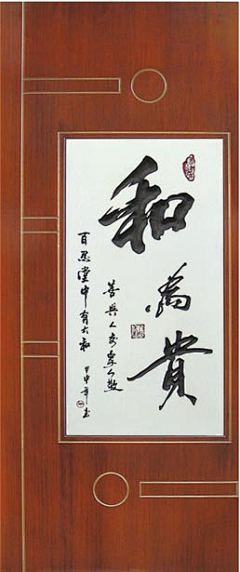 和為貴
善與人交眾人敬
百忍堂中有太和 甲申年